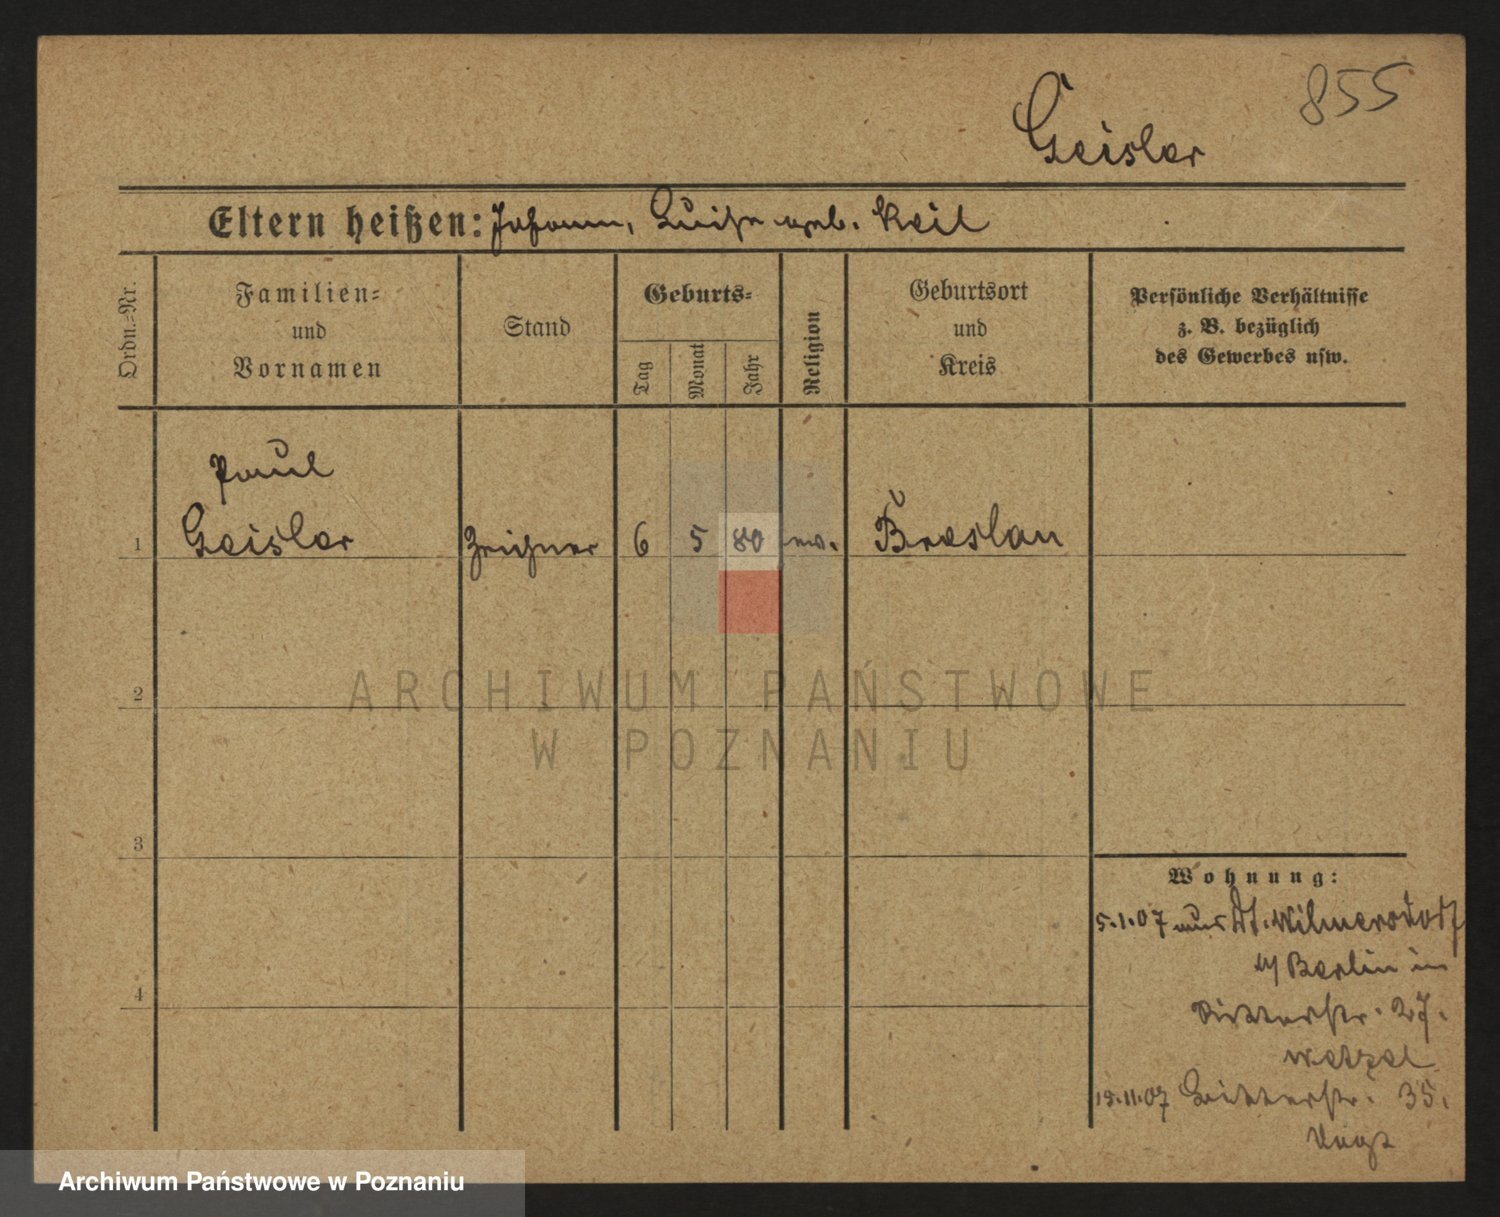 855
Geisler
Eltern heißen: Johann, Luise geb. Keil
Ordn.-Nr.
Familien-
und
Vornamen
Stand
Geburts-
Tag
Monat
Jahr
Religion
Geburtsort
und
Kreis
Persönliche Verhältnisse
z. B. bezüglich
des Gewerbes usw.
Paul
1 Geisler Zeichner 6 5 80 ev. Breslau
2
3
4
ARCHIWUM PAŃSTWOWE
W POZNANIU
Wohnung:
5.1.07 aus Dt. Wilmersdorf
b/ Berlin in
Ritterstr. 27.
Wetzel
.11.07 Ritterstr. 35.
Archiwum Państwowe w Poznaniu